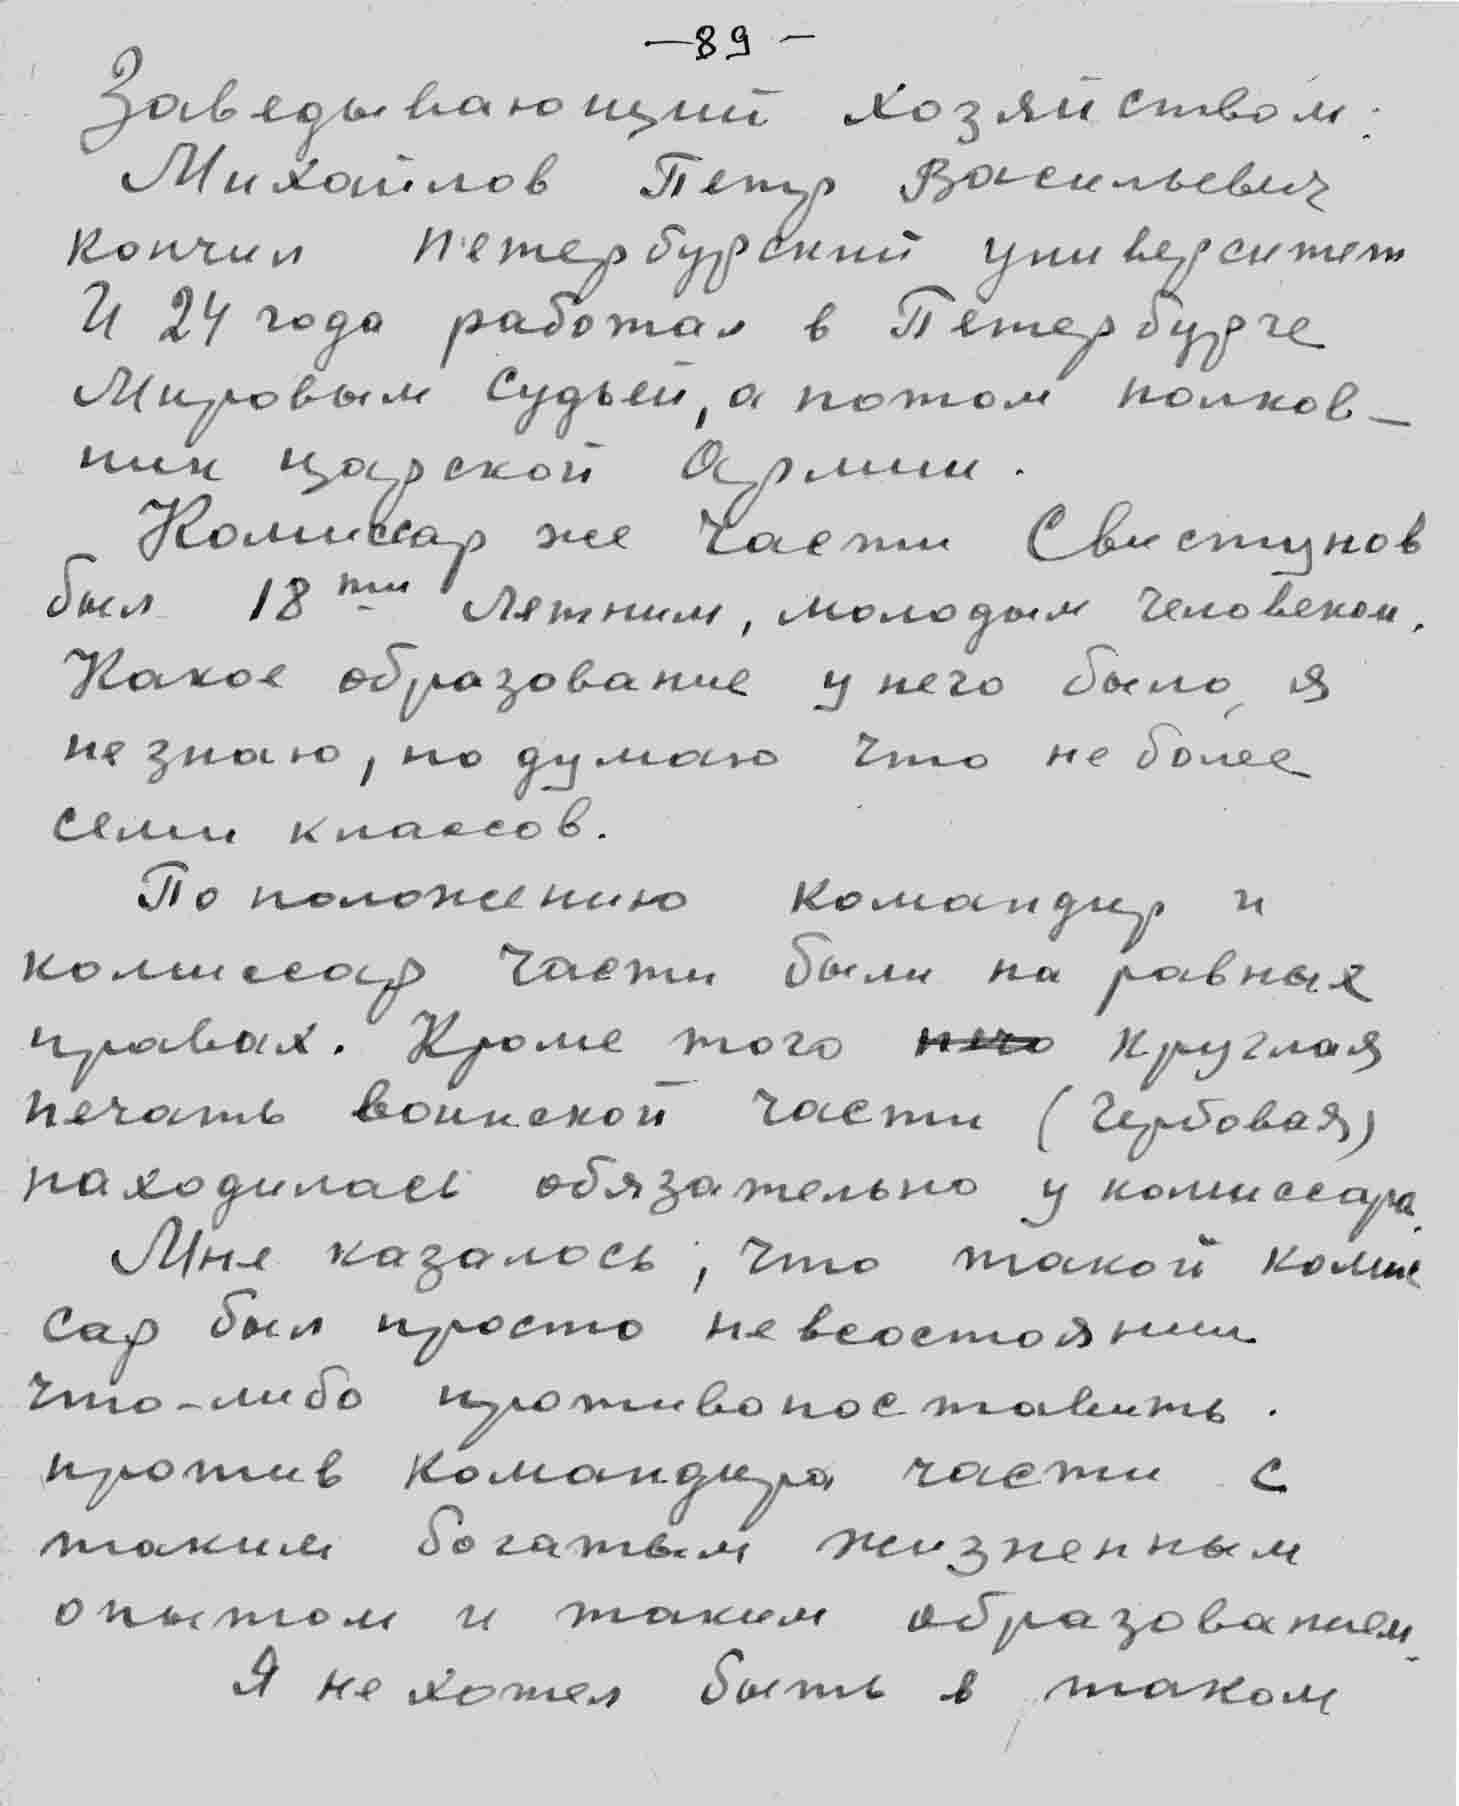 —89—
Заведывающий хозяйством:
Михайлов Петр Васильевич
кончил Петербурский университет
И 24 года работал в Петербурге
Мировым Судьей, а потом полков-
ник царской Армии.
Комиссар же части Свистунов
был 18ти летним, молодым человеком.
Какое образование у него было, я
не знаю, но думаю что не более
семи классов.
По положению командир и
комиссар части были на равных
правах. Кроме того круглая
печать воинской части (Гербовая)
находилась обязательно у комиссара.
Мне казалось, что такой комис
сар был просто не всостоянии
что-либо противопоставить.
против командира части с
таким богатым жизненным
опытом и таким образованием.
Я не хотел быть в таком